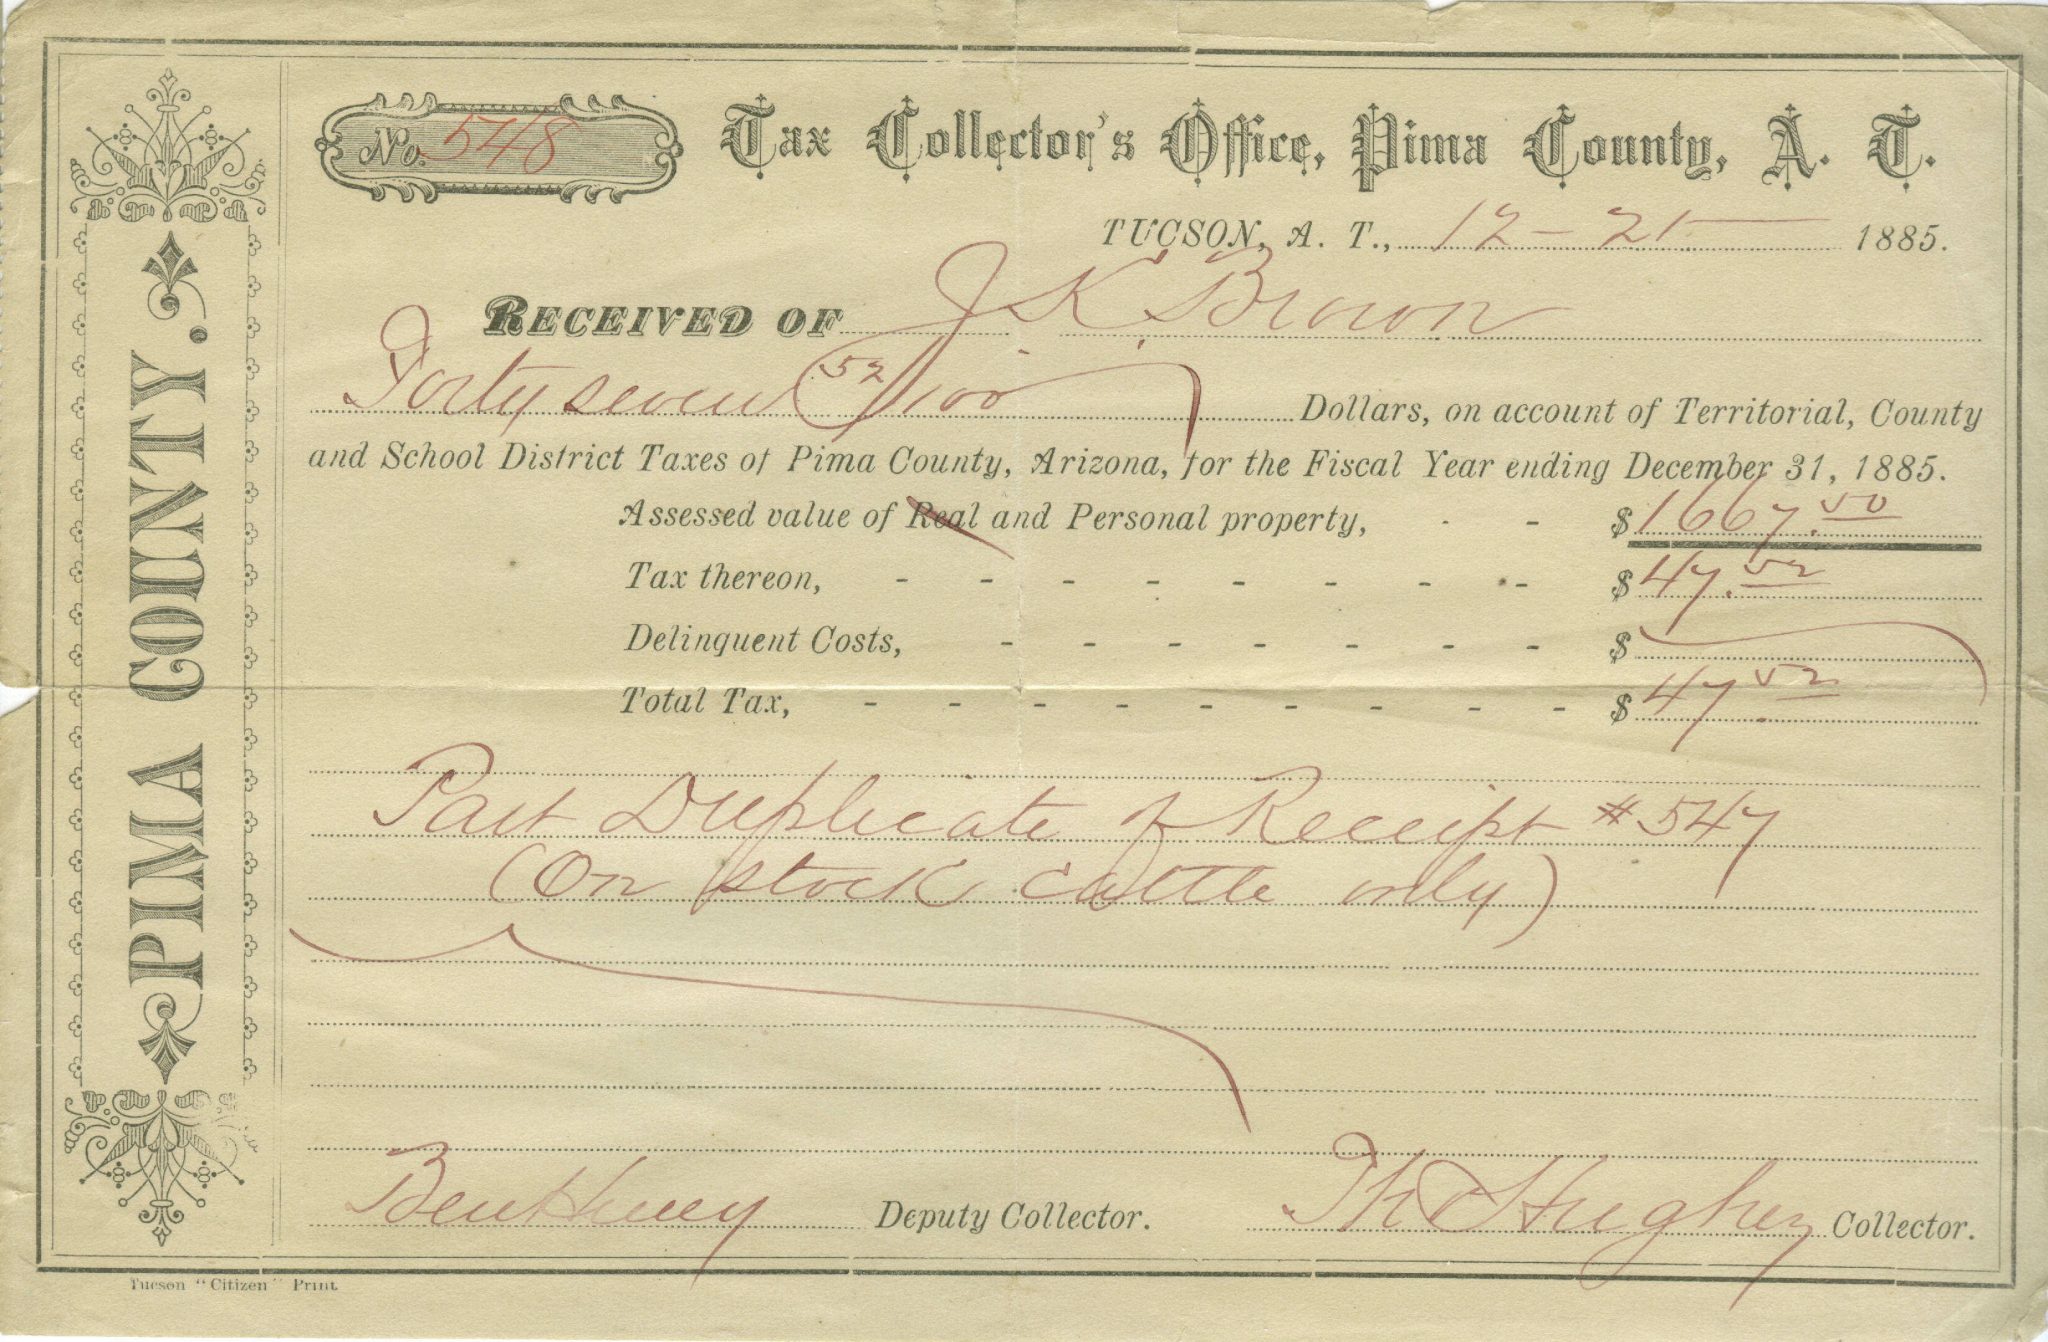 PIMA COUNTY.
No. 548
Tax Collector's Office, Pima County, A. T.
TUCSON, A. T., 12 - 21 1885.
RECEIVED OF J K Brown
Forty seven 52/100 Dollars, on account of Territorial, County
and School District Taxes of Pima County, Arizona, for the Fiscal Year ending December 31, 1885.
Assessed value of Real and Personal property, - - $1667.50
Tax thereon, - - - - - - - - - $47.52
Delinquent Costs, - - - - - - - $
Total Tax, - - - - - - - - - $47.52
Part Duplicate of Receipt #547
(On stock cattle only)
Ben Deputy Collector. Hughes Collector.
Tucson "Citizen" Print